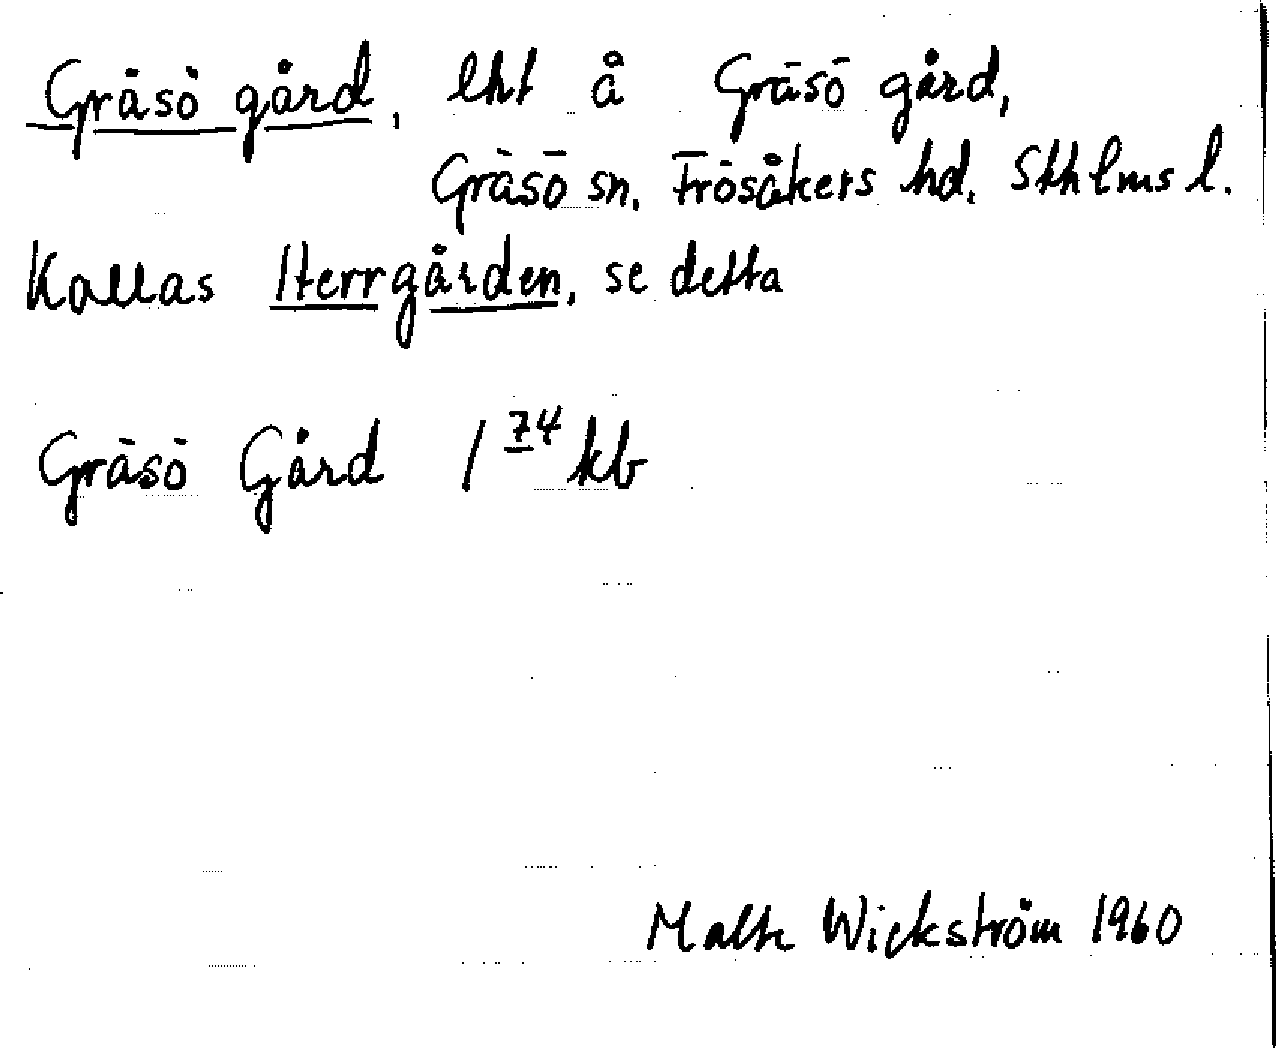 Gräsö gård, lht å Gräsö gård,
Gräsö sn. Frösåkers hd. Sthlms l.
Kallas Herrgården, se detta
Gräsö Gård 1 74 kb
Malte Wickström 1960